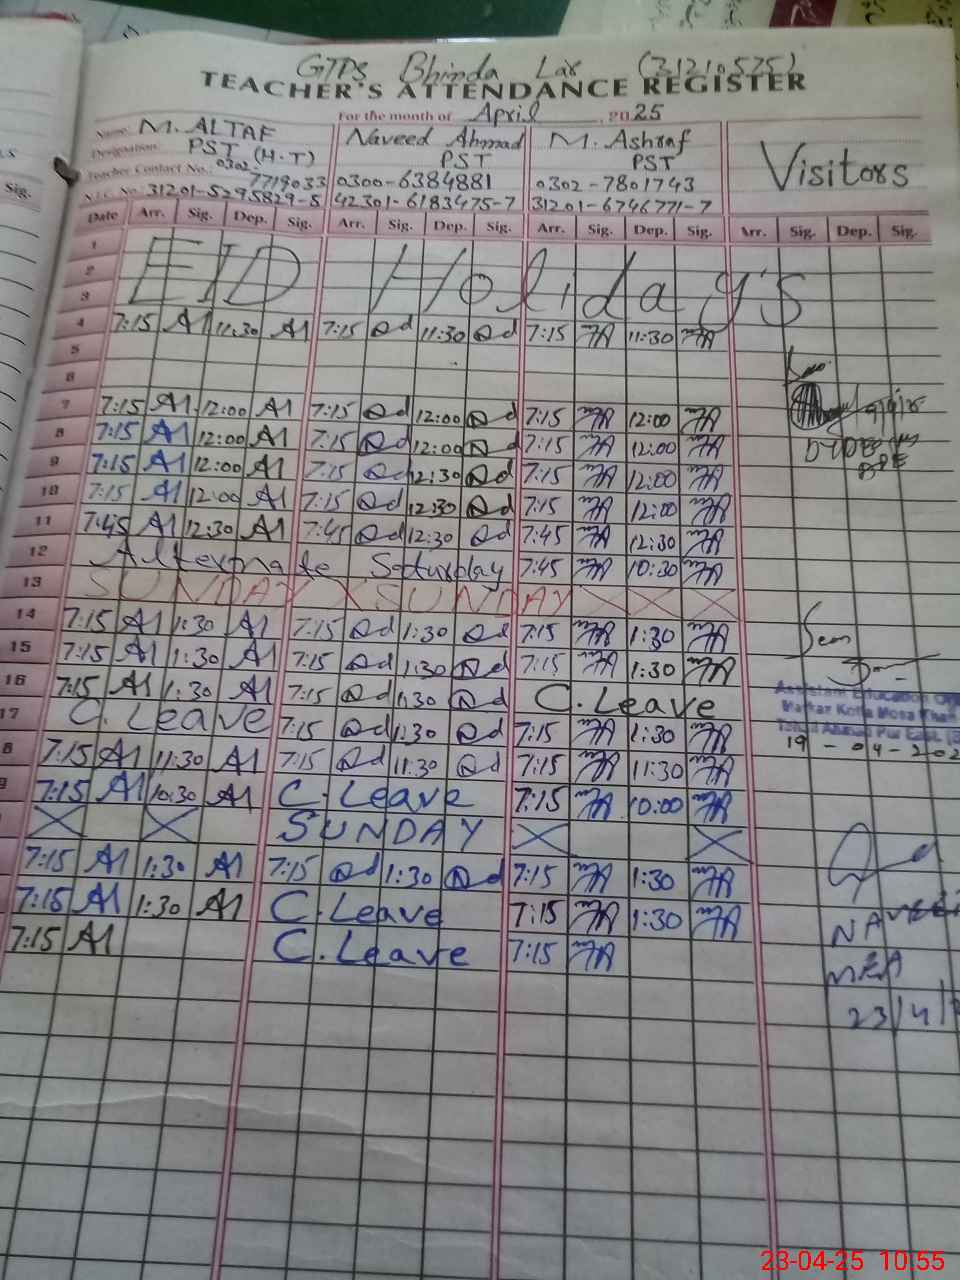 GTPS Bhinda Lar (31210575)
TEACHER'S ATTENDANCE REGISTER
For the month of April 2025
Name: M. ALTAF Naveed Ahmad M. Ashraf Visitors
Designation: PST (H.T) PST PST
Teacher Contact No.: 0302-7719033 0300-6384881 0302-7801743
N.I.C. No. 31201-5295829-5 42301-6183475-7 31201-6746771-7
Date Arr. Sig. Dep. Sig. Arr. Sig. Dep. Sig. Arr. Sig. Dep. Sig. Arr. Sig. Dep. Sig.
1
2 EID Holiday's
3
4 7:15 A1 11:30 A1 7:15 11:30 7:15 11:30
5
6
7 7:15 A1 12:00 A1 7:15 12:00 7:15 12:00
8 7:15 A1 12:00 A1 7:15 12:00 7:15 12:00
9 7:15 A1 12:00 A1 7:15 12:30 7:15 12:00
10 7:15 A1 12:00 A1 7:15 12:30 7:15 12:00
11 7:45 A1 12:30 A1 7:45 12:30 7:45 12:30
12 Alternate Saturday 7:45 10:30
13 SUNDAY X SUNDAY X X X
14 7:15 A1 1:30 A1 7:15 1:30 7:15 1:30
15 7:15 A1 1:30 A1 7:15 1:30 7:15 1:30
16 7:15 A1 1:30 A1 7:15 1:30 C. Leave
17 C. Leave 7:15 1:30 7:15 1:30
8 7:15 A1 11:30 A1 7:15 11:30 7:15 11:30
9 7:15 A1 10:30 A1 C. Leave 7:15 10:00
X X SUNDAY X X
7:15 A1 1:30 A1 7:15 1:30 7:15 1:30
7:15 A1 1:30 A1 C. Leave 7:15 1:30
7:15 A1 C. Leave 7:15
Seen
Assistant Education
Markaz Kotla Mosa Khan
Tehsil Ahmad Pur East
19-04-202
MEA
23/4/
23-04-25 10.55